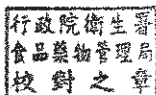 行政院衛生署
食品藥物管理局
校對之章